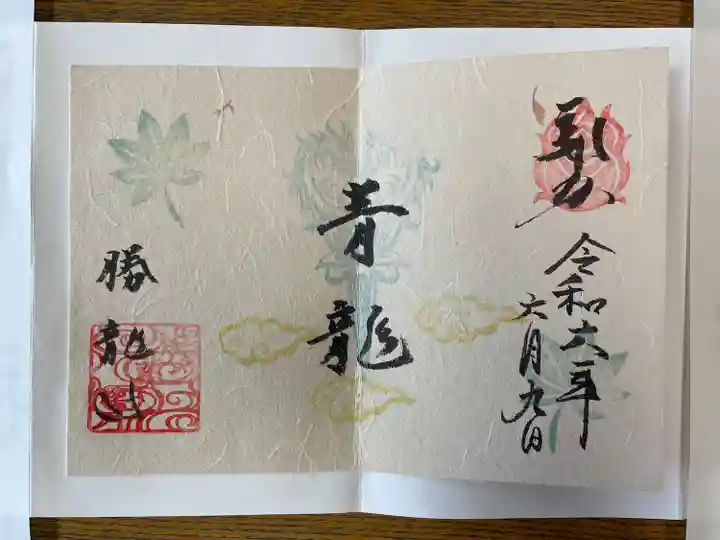 奉拝
令和六年
六月九日
青龍
勝龍寺